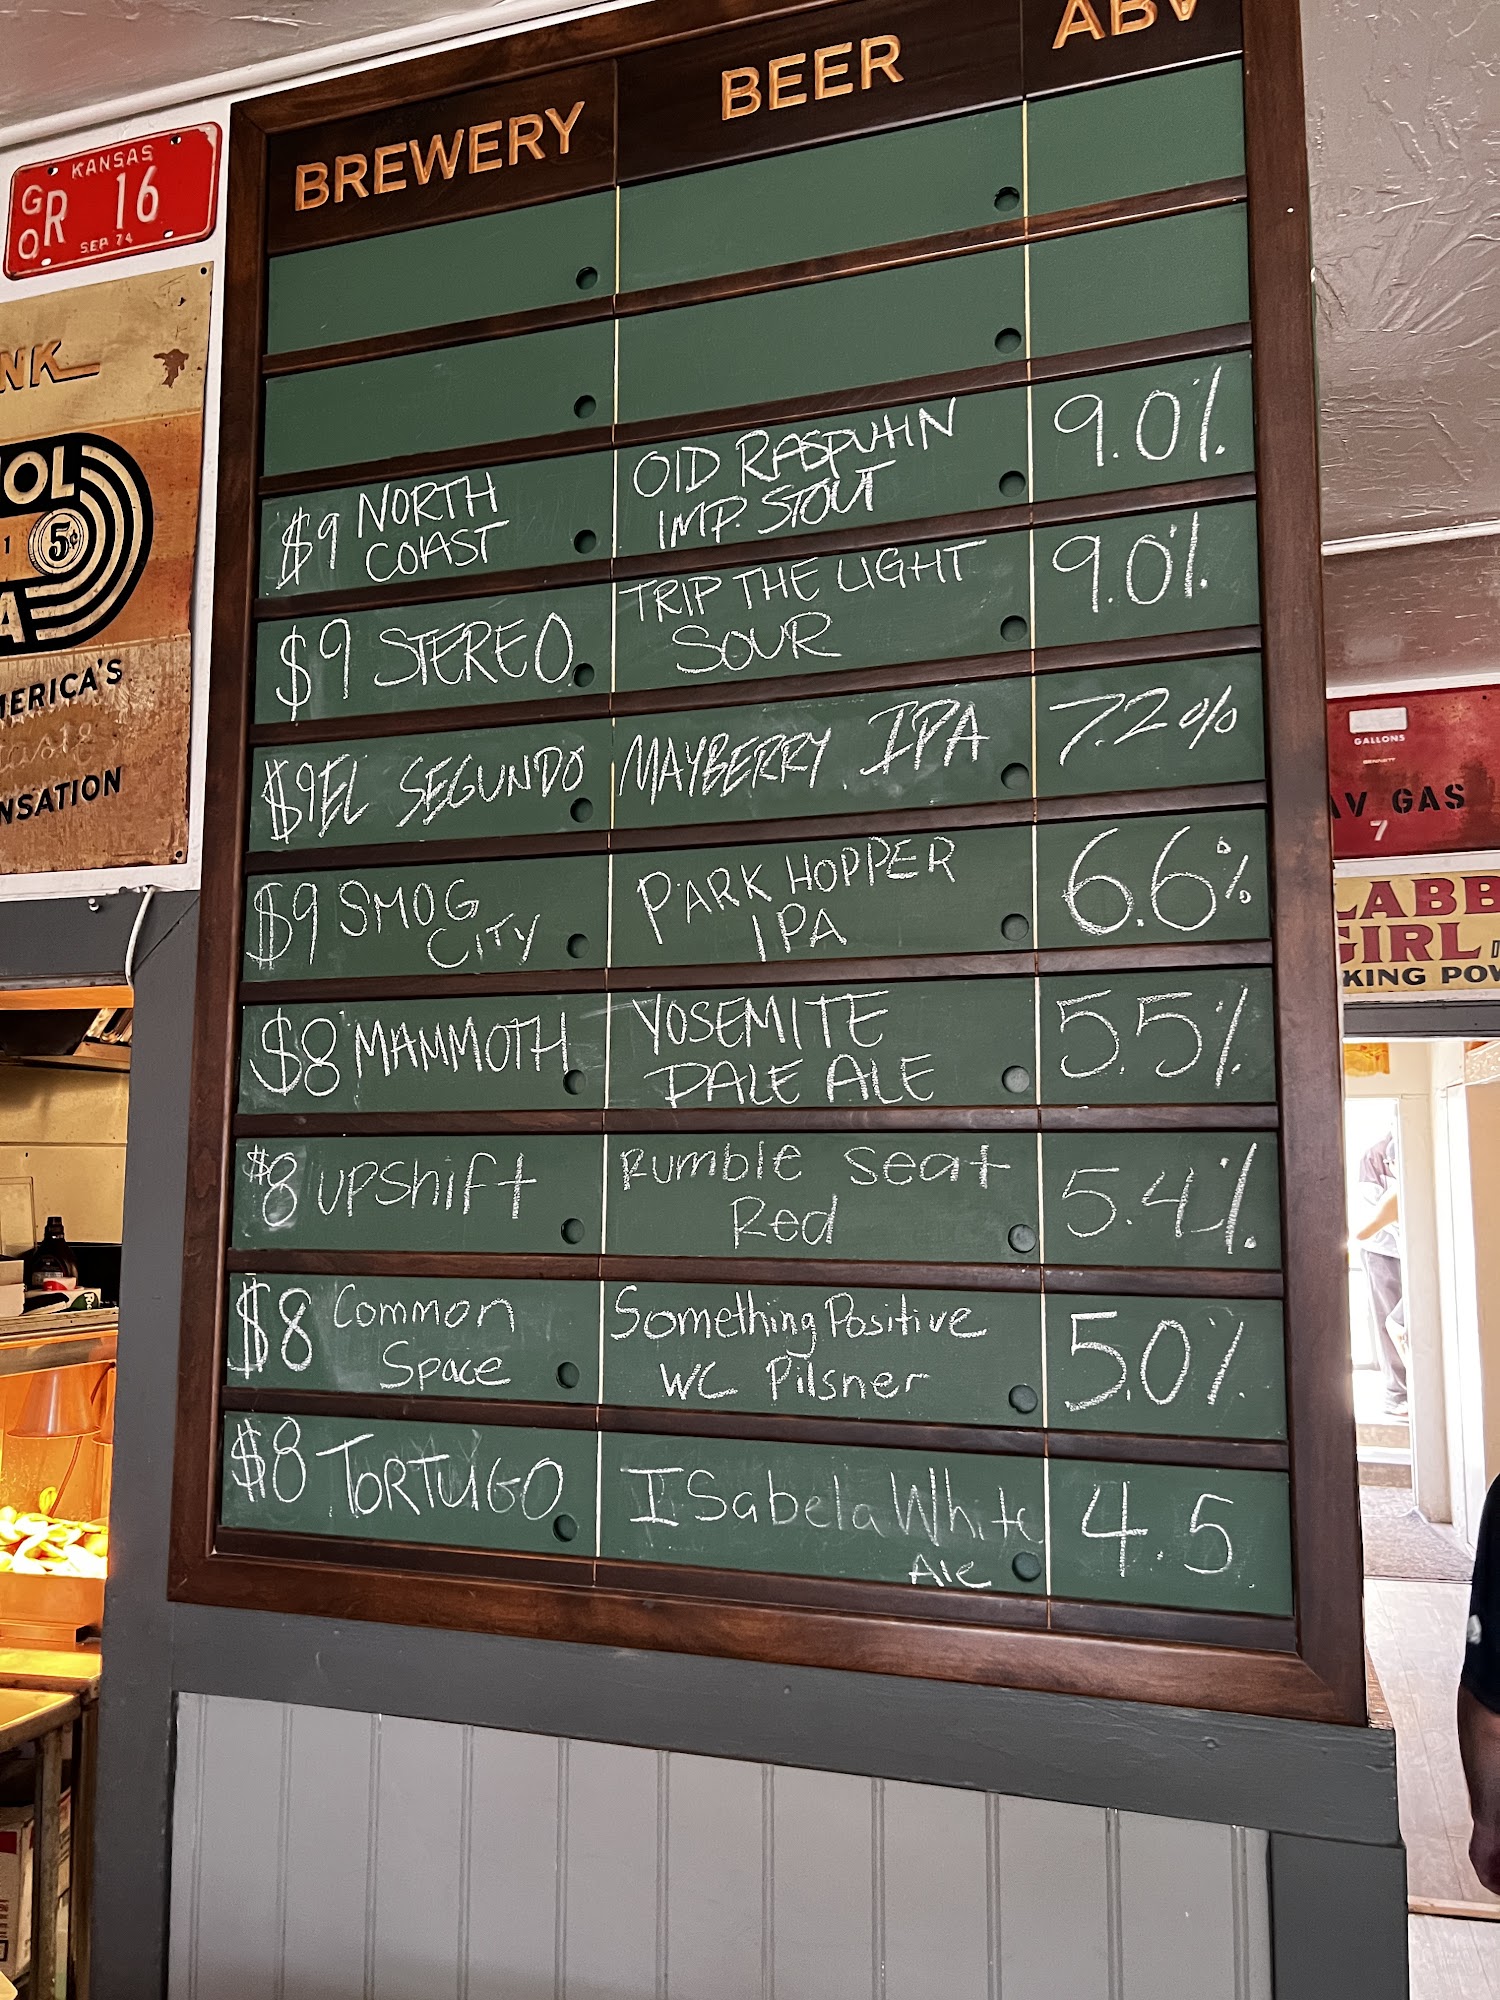 BREWERY BEER ABV
$9 NORTH COAST OLD RASPUHIN IMP. STOUT 9.0%
$9 STEREO TRIP THE LIGHT SOUR 9.0%
$9 EL SEGUNDO MAYBERRY IPA 7.2%
$9 SMOG CITY PARK HOPPER IPA 6.6%
$8 MAMMOTH YOSEMITE PALE ALE 5.5%
$8 UPShift Rumble Seat Red 5.4%
$8 Common Space Something Positive WC Pilsner 5.0%
$8 TORTUGO ISabela White Ale 4.5
KANSAS
GO R 16
SEP 74
NK
OL
1 5¢
A
MERICA'S
aste
NSATION
GALLONS
BENNETT
AV GAS
7
LABB
GIRL
KING POW